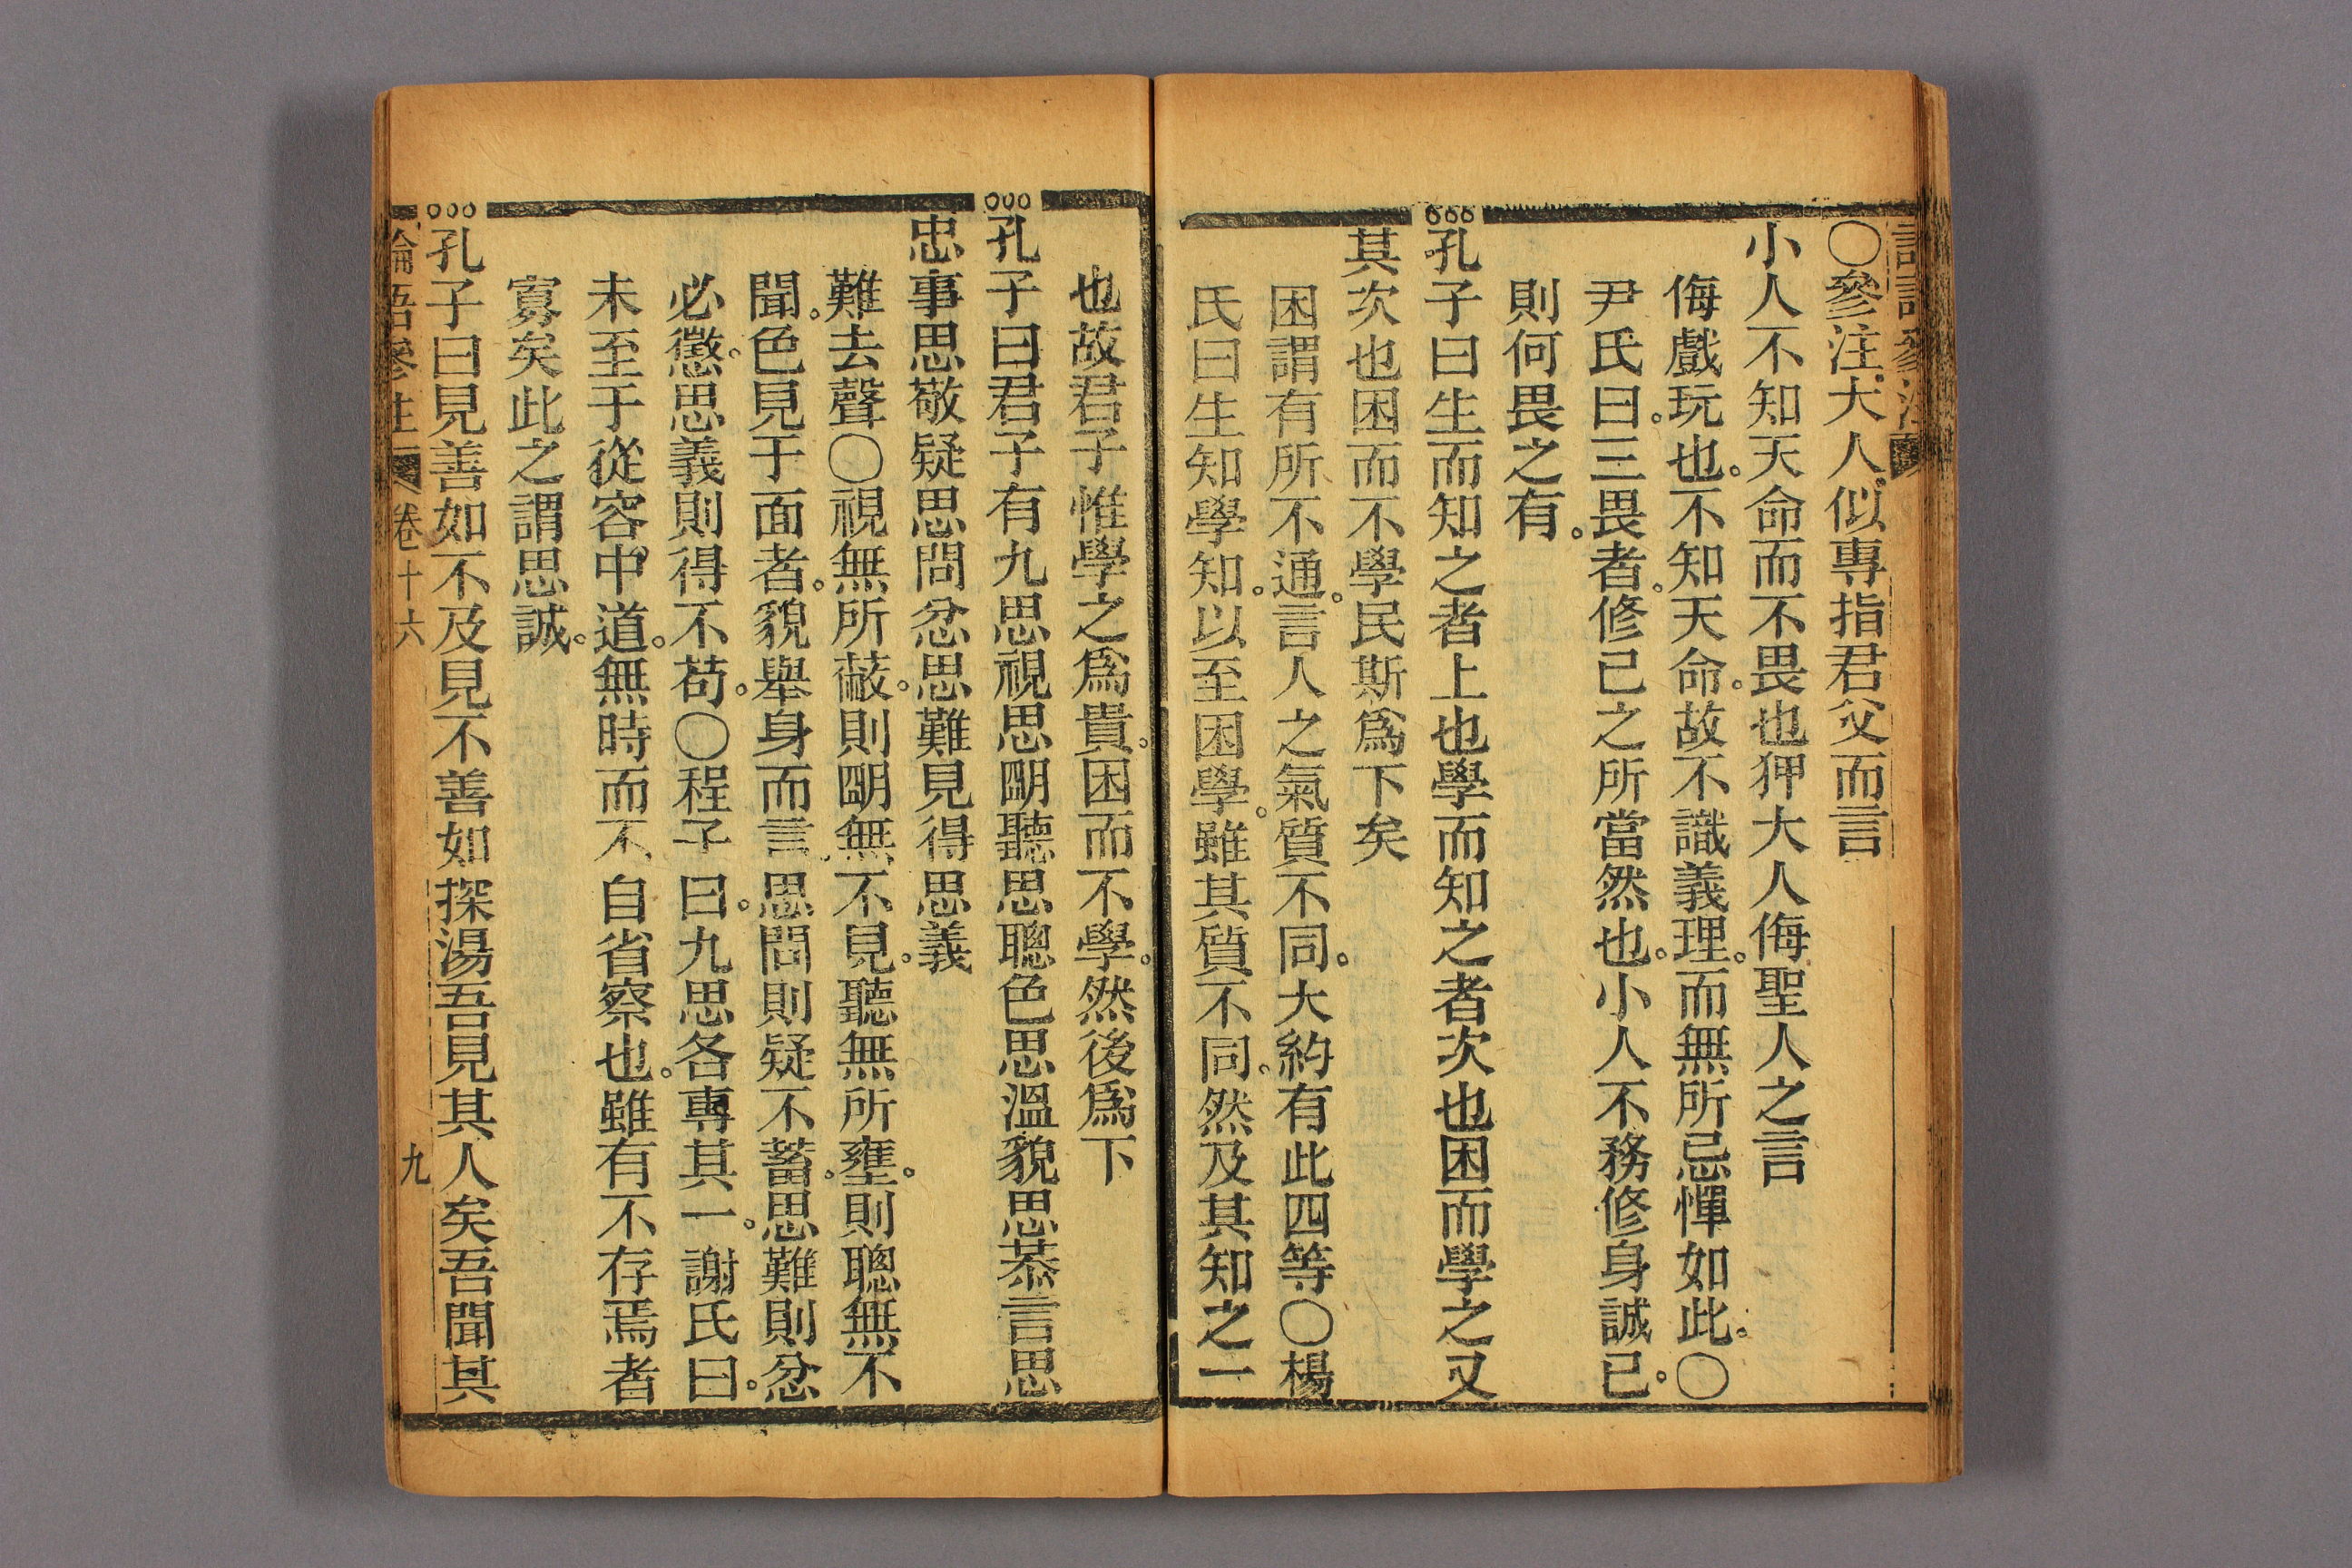 〇參注大人似專指君父而言
小人不知天命而不畏也狎大人侮聖人之言
侮戲玩也。不知天命。故不識義理。而無所忌憚如此。〇
尹氏曰。三畏者。修已之所當然也。小人不務修身誠已。
則何畏之有。
孔子曰生而知之者上也學而知之者次也困而學之又
其次也困而不學民斯爲下矣
困謂有所不通。言人之氣質不同。大約有此四等〇楊
氏曰生知學知。以至困學。雖其質不同。然及其知之一
也故君子惟學之爲貴。困而不學。然後爲下
孔子曰君子有九思視思明聽思聰色思溫貌思恭言思
忠事思敬疑思問忿思難見得思義
難去聲〇視無所蔽。則明無不見。聽無所壅。則聰無不
聞。色見于面者。貌舉身而言。思問則疑不蓄。思難則忿
必懲。思義則得不苟。〇程子曰。九思各專其一。謝氏曰。
未至于從容中道。無時而不自省察也。雖有不存焉者
寡矣此之謂思誠。
孔子曰見善如不及見不善如探湯吾見其人矣吾聞其
論語參注 卷十六 九